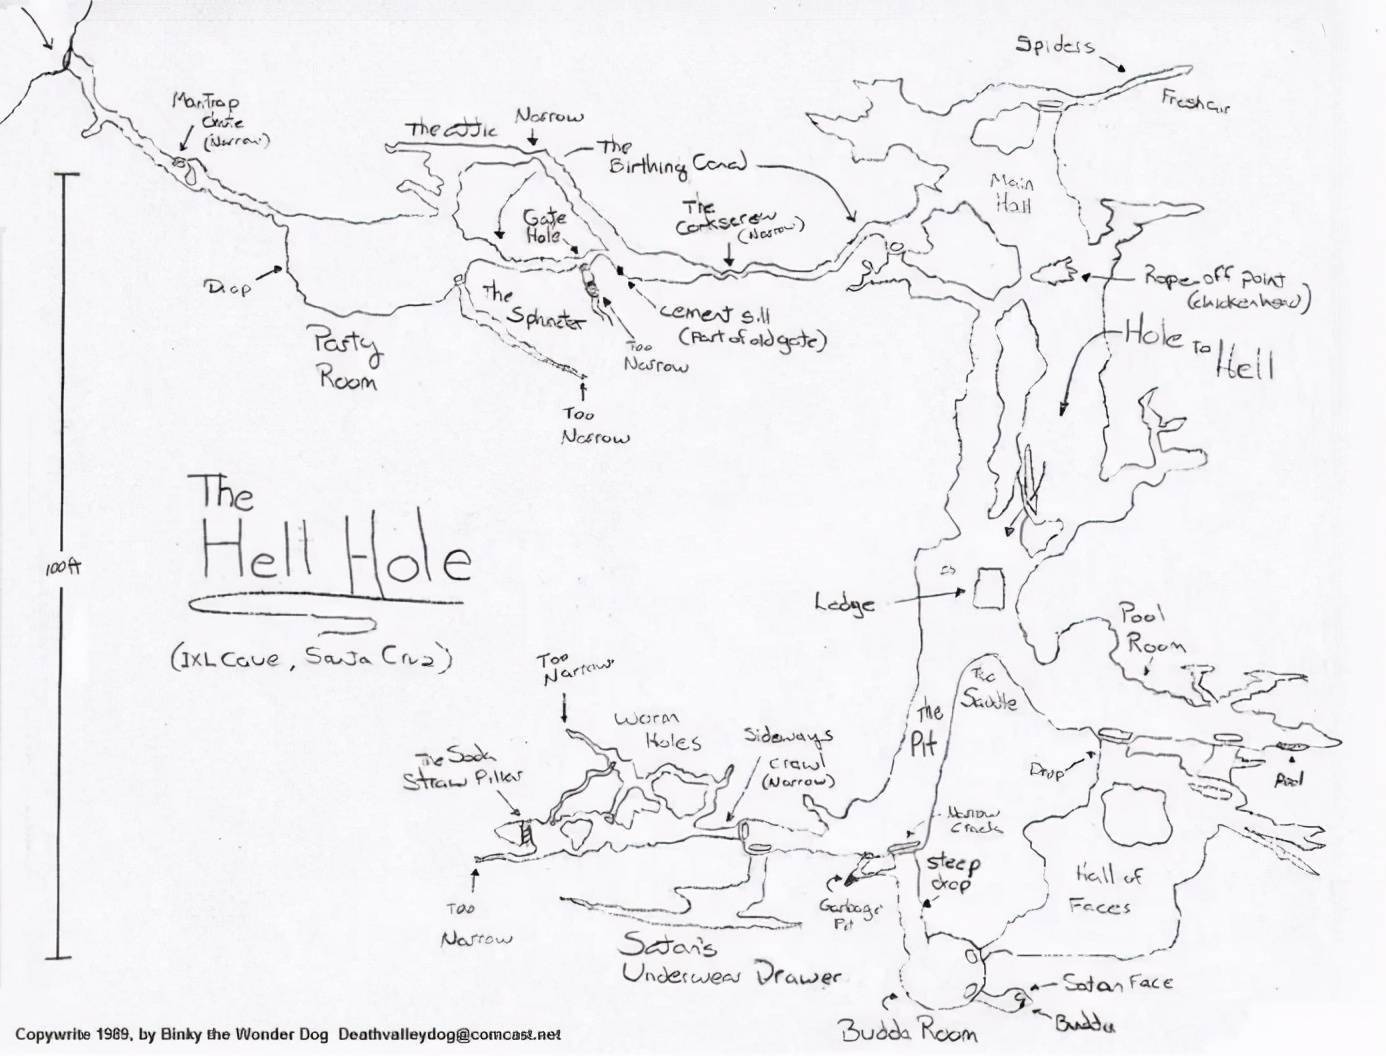 Spiders
Fresh air
ManTrap
chute
(Narrow)
The attic
Narrow
The
Birthing Canal
Main
Hall
Gate
Hole
The
Corkscrew
(Narrow)
Drop
The
Sphincter
cement sill
(Part of old gate)
Rope off point
(chickenhead)
Too
Narrow
Party
Room
Hole To Hell
Too
Narrow
The
Hell Hole
(IXL Cave, Santa Cruz)
100ft
Ledge
Pool
Room
Too
Narrow
The
Saddle
The
Pit
Worm
Holes
Sideways
crawl
(Narrow)
The Soda
Straw Pillar
Drop
Pool
Narrow
Crack
steep
drop
Hall of
Faces
Garbage
Pit
Too
Narrow
Satan's
Underwear Drawer
Satan Face
Budda
Budda Room
Copywrite 1989, by Binky the Wonder Dog Deathvalleydog@comcast.net